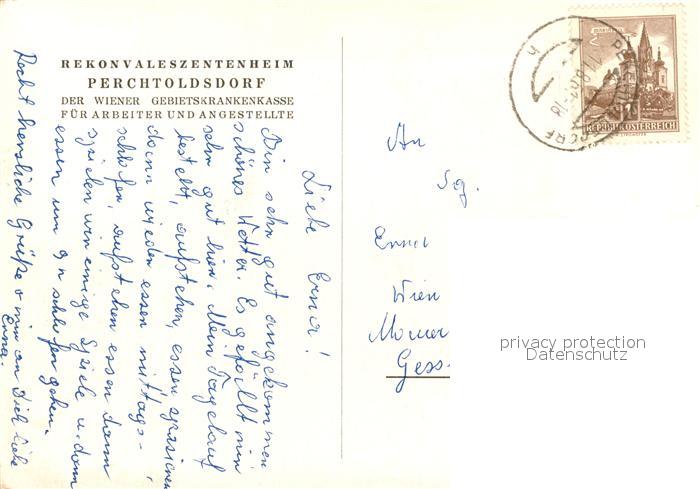 REKONVALESZENTENHEIM
PERCHTOLDSDORF
DER WIENER GEBIETSKRANKENKASSE
FÜR ARBEITER UND ANGESTELLTE
Liebe Erna!
Bin sehr gut angekommen
schönes Wetter. Es gefällt mir
sehr gut hier. Mein Tageslauf
besteht, aufstehen, essen spazieren
dann wieder essen mittags-
schlafen, aufstehen essen dann
spielen wir einige Spiele u. dann
essen um 9h schlafen gehen.
Recht herzliche Grüße v. mir an Dich liebe
Erna.
An
Erna
Wien
Gess.
REPUBLIK ÖSTERREICH
privacy protection
Datenschutz